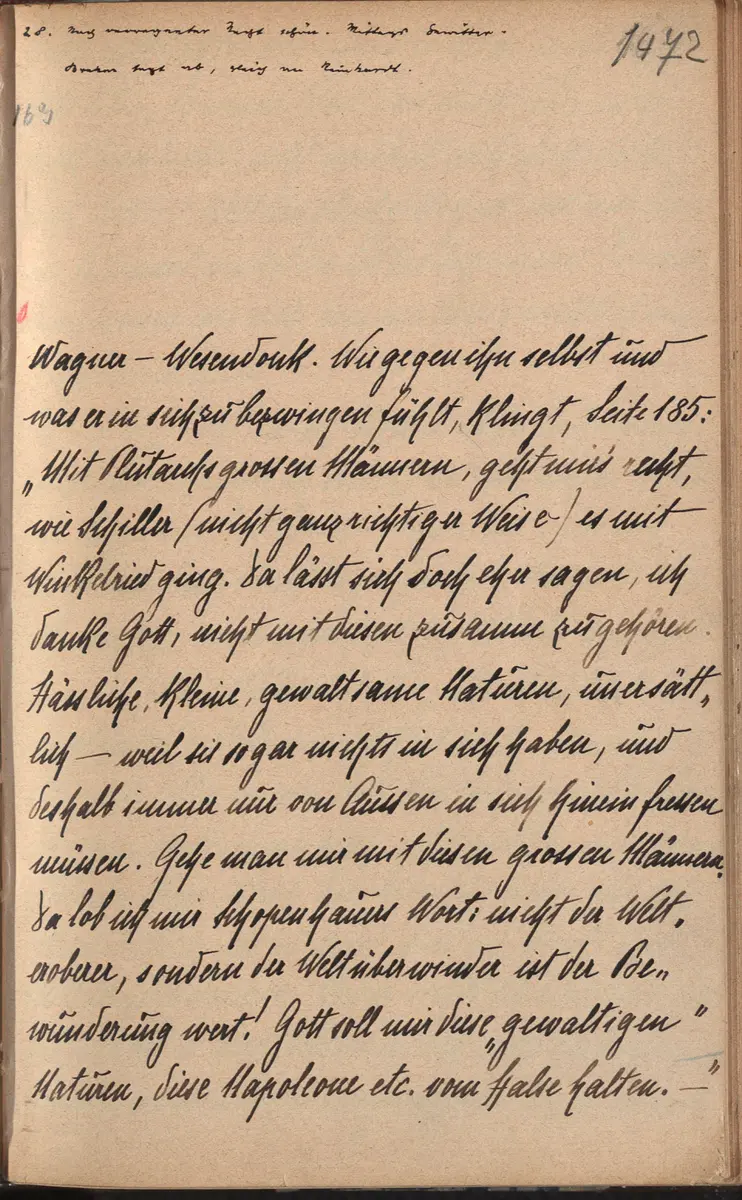 28. Nach verregneter Nacht schön. Mittags Gewitter.
Brahm sagt ab, gleich an Reinhardt.
1472
169
Wagner – Wesendonk. Wie gegen ihn selbst und
was er in sich zu bezwingen fühlt, klingt, Seite 185:
„Mit Plutarchs grossen Männern, geht mir's recht,
wie Schiller (nicht ganz richtiger Weise) es mit
Winkelried ging. Da lässt sich doch eher sagen, ich
danke Gott, nicht mit diesen zusamm zu gehören.
Hässliche, kleine, gewaltsame Naturen, unersätt„
lich – weil sie so gar nichts in sich haben, und
deshalb immer nur von Aussen in sich hinein fressen
müssen. Gehe man mir mit diesen grossen Männern.
Da lob ich mir Schopenhauers Wort: nicht der Welt„
eroberer, sondern der Weltüberwinder ist der Be„
wunderung wert! Gott soll mir diese „gewaltigen"
Naturen, diese Napoleone etc. vom Halse halten. –"